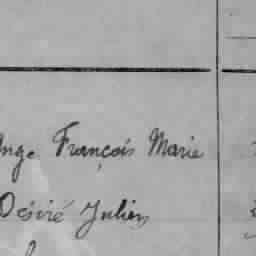 Ange François Marie
Désiré Julien